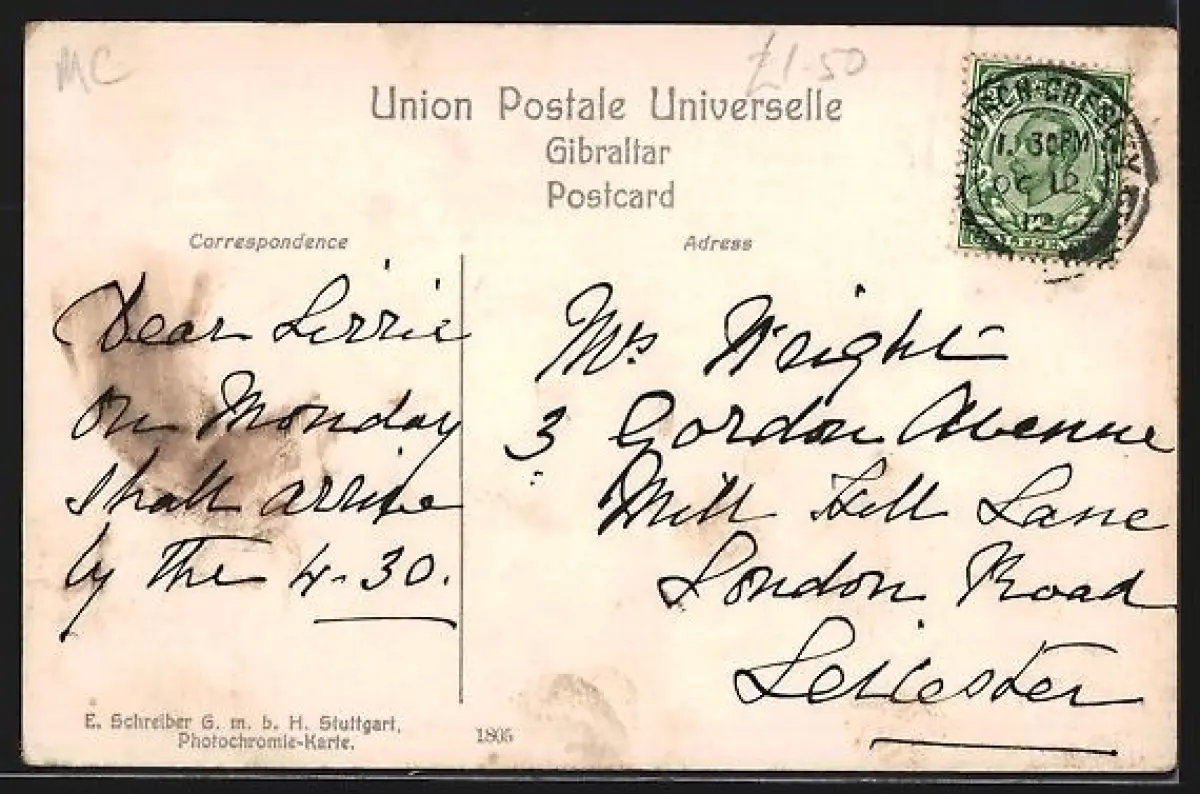 MC
£1.50
Union Postale Universelle
Gibraltar
Postcard
CHURCH-GRESLEY
1. 30PM
OC 12
12
Correspondence
Adress
Dear Lizzie
On Monday
shall arrive
by the 4-30.
Mrs Wright
3 Gordon Avenue
Mill Hill Lane
London Road
Leicester
E. Schreiber G. m. b. H. Stuttgart,
Photochromie-Karte.
1805